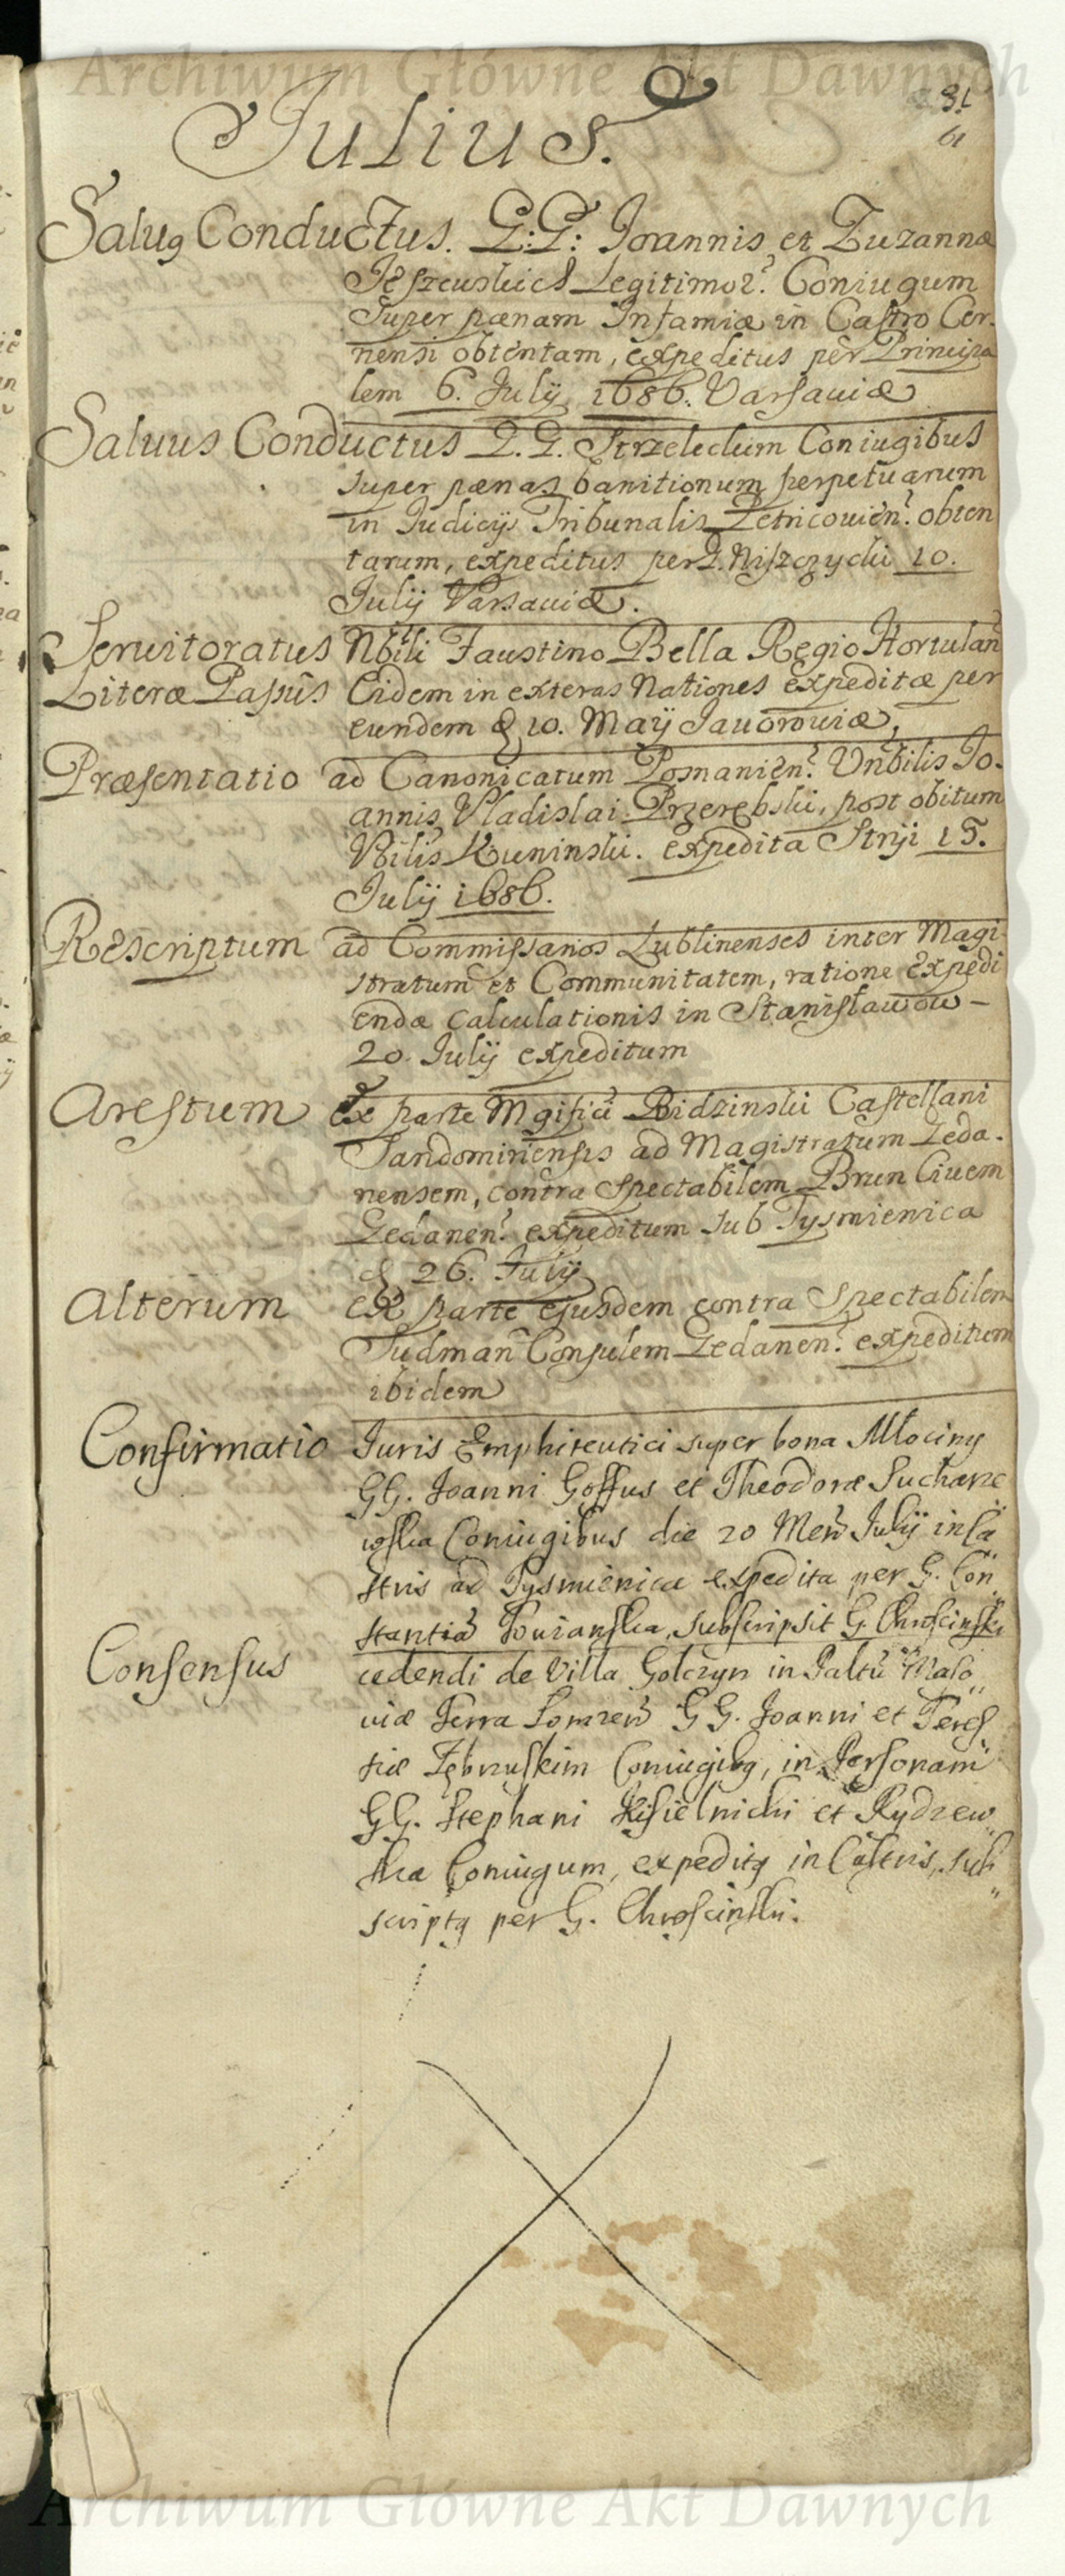 Archiwum Główne Akt Dawnych
31
61
Julius.
Saluq Conductus. G:G: Joannis et Zuzannæ
Legitimor. Coniugum
Super pœnam Infamiæ in Castro Cer-
nensi obtentam, expeditus per Principa
lem 6. July 1686. Varsauiæ
Saluus Conductus G.G. Strzeleckim Coniugibus
super pœnas banitionum perpetuarum
in Judicijs Tribunalis Petricouien. obten
tarum, expeditus per G. Niszczycki 10.
Julij Varsauiæ.
Seruitoratus Nbili Faustino Bella Regio Hortulan
Literæ Passus Eidem in exteras Nationes expeditæ per
eundem d 10. Maij Jauoroviæ,
Præsentatio ad Canonicatum Posnanien. Vnbilis Jo-
annis Vladislai Przerębski, post obitum
Vbilis Kuninski. expedita Strÿi 15.
Julij 1686.
Rescriptum ad Commissarios Lublinenses inter Magi
stratum et Communitatem, ratione expedi
endæ calculationis in Stanisławow -
20. Julij expeditum
Arestum ex parte Mgifici Bidzinski Castellani
Sandomiriensis ad Magistratum Geda-
nensem, contra Spectabilem Brun Ciuem
Gedanen. expeditum sub Tysmienica
d 26. July
Alterum ex parte ejusdem contra Spectabilem
Sudman Consulem Gedanen. expeditum
ibidem
Confirmatio Juris Emphiteutici super bona Młociny
GG. Joanni Goffus et Theodoræ Sucharze
wska Coniugibus die 20 Men Julij in Ca
stris ad Tysmienica expedita per G. Con
stantia Towianska, subscripsit G. Chroscinski
Consensus cedendi de Villa Golczyn in Paltu Maso
uiæ Terra Lomzen GG. Joanni et Teres
siæ Coniugibq, in Personam
GG. Stephani Kisielnicki et Rydzew
ska Coniugum, expeditq in Castris, sub
scriptq per G. Chroscinski.
Archiwum Główne Akt Dawnych